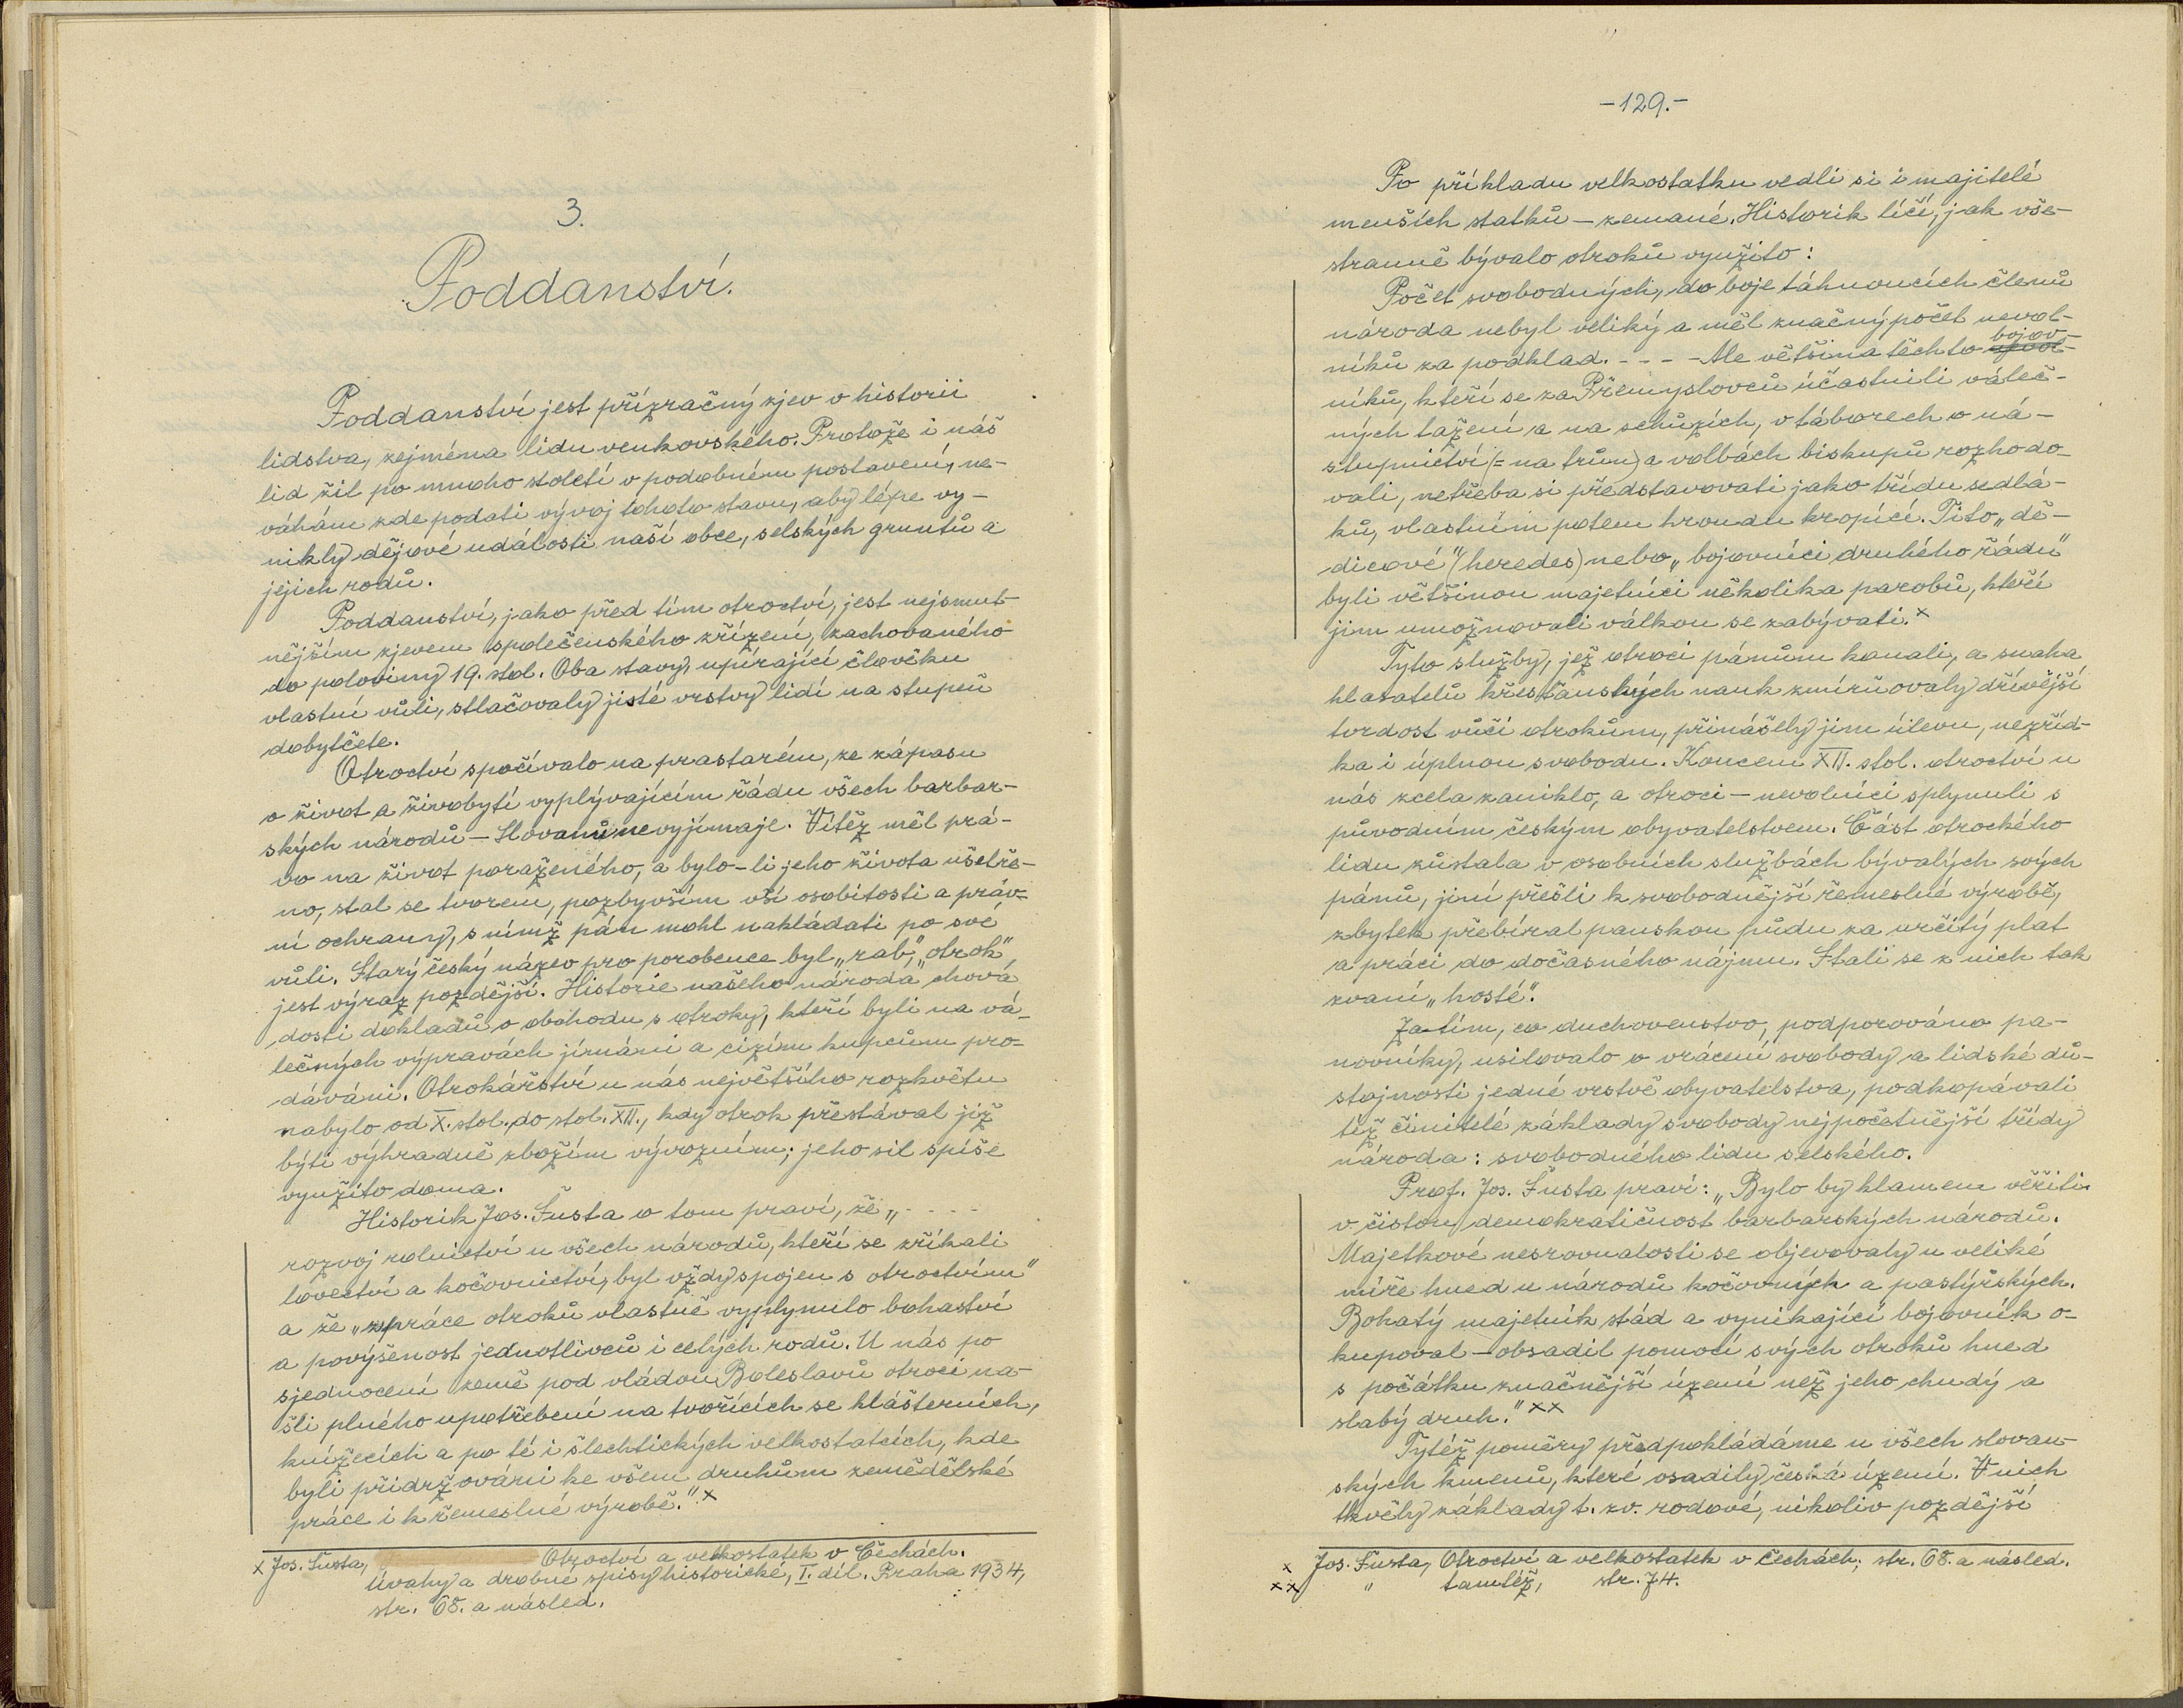 3.
Poddanství.
Poddanství jest přízračný zjev v historii
lidstva, zejména lidu venkovského. Protože i náš
lid žil po mnoho století v podobném postavení, ne-
váhám zde podati vývoj tohoto stavu, aby lépe vy-
nikly dějové události naší obce, selských gruntů a
jejich rodů.
Poddanství, jako před tím otroctví, jest nejsmut-
nějším zjevem společenského zřízení, zachovaného
do poloviny 19. stol. Oba stavy, upírající člověku
vlastní vůli, stlačovaly jisté vrstvy lidí na stupeň
dobytčete.
Otroctví spočívalo na prastarém, ze zápasu
o život a živobytí vyplývajícím řádu všech barbar-
ských národů — Slovanů nevyjímaje. Vítěz měl prá-
vo na život poraženého, a bylo-li jeho života ušetře-
no, stal se tvorem, pozbyvším vší osobitosti a práv-
ní ochrany, s nímž pán mohl nakládati po své
vůli. Starý český název pro porobence byl „rab“, „otrok“
jest výraz pozdější. Historie našeho národa chová
dosti dokladů o obchodu s otroky, kteří byli na vá-
lečných výpravách jímáni a cizím kupcům pro-
dáváni. Otrokářství u nás největšího rozkvětu
nabylo od X. stol. do stol. XII., kdy otrok přestával již
býti výhradně zbožím vývozním; jeho sil spíše
využito doma.
Historik Jos. Šusta o tom praví, že „- - - -
rozvoj rolnictví u všech národů, kteří se zříkali
lovectví a kočovnictví, byl vždy spojen s otroctvím“
a že „z práce otroků vlastně vyplynulo bohatství
a povýšenost jednotlivců i celých rodů. U nás po
sjednocení země pod vládou Boleslavů otroci na-
šli plného upotřebení na tvořících se klášterních,
knížecích a po té i šlechtických velkostatcích, kde
byli přidržováni ke všem druhům zemědělské
práce i k řemeslné výrobě.“ x
x Jos. Šusta, Otroctví a velkostatek v Čechách.
Úvahy a drobné spisy historické, I. díl. Praha 1934,
str. 68. a násled.
-129.-
Po příkladu velkostatku vedli si i majitelé
menších statků — zemané. Historik líčí, jak vše-
stranně bývalo otroků využito:
Počet svobodných, do boje táhnoucích členů
národa nebyl veliký a měl značný počet nevol-
níků za podklad. - - - - Ale většina těchto bojov-
níků, kteří se za Přemyslovců účastnili váleč-
ných tažení a na schůzích, v táborech o ná-
stupnictví (= na trůn) a volbách biskupů rozhodo-
vali, netřeba si představovati jako třídu sedlá-
ků, vlastním potem hroudu kropící. Tito „dě-
dicové“ (heredes) nebo „bojovníci druhého řádu“
byli většinou majetníci několika parobů, kteří
jim umožnovali válkou se zabývati. x
Tyto služby, jež otroci pánům konali, a snaha
hlasatelů křesťanských nauk zmírňovaly dřívější
tvrdost vůči otrokům, přinášely jim úlevu, nezříd-
ka i úplnou svobodu. Koncem XII. stol. otroctví u
nás zcela zaniklo, a otroci — nevolníci splynuli s
původním českým obyvatelstvem. Část otrockého
lidu zůstala v osobních službách bývalých svých
pánů, jiní přešli k svobodnější řemeslné výrobě,
zbytek přebíral panskou půdu za určitý plat
a práci do dočasného nájmu. Stali se z nich tak
zvaní „hosté“.
Zatím, co duchovenstvo, podporováno pa-
novníky, usilovalo o vrácení svobody a lidské dů-
stojnosti jedné vrstvě obyvatelstva, podkopávali
tíž činitelé základy svobody nejpočetnější třídy
národa: svobodného lidu selského.
Prof. Jos. Šusta praví: „Bylo by klamem věřiti
v čistou demokratičnost barbarských národů.
Majetkové nesrovnalosti se objevovaly u veliké
míře hned u národů kočovných a pastýřských.
Bohatý majetník stád a vynikající bojovník o-
kupoval — obsadil pomocí svých otroků hned
s počátku značnější území než jeho chudý a
slabý druh.“ xx
Tytéž poměry předpokládáme u všech slovan-
ských kmenů, které osadily česká území. V nich
tkvěly základy t. zv. rodové, nikoliv pozdější
x Jos. Šusta, Otroctví a velkostatek v Čechách; str. 68. a násled.
xx " tamtéž, str. 74.